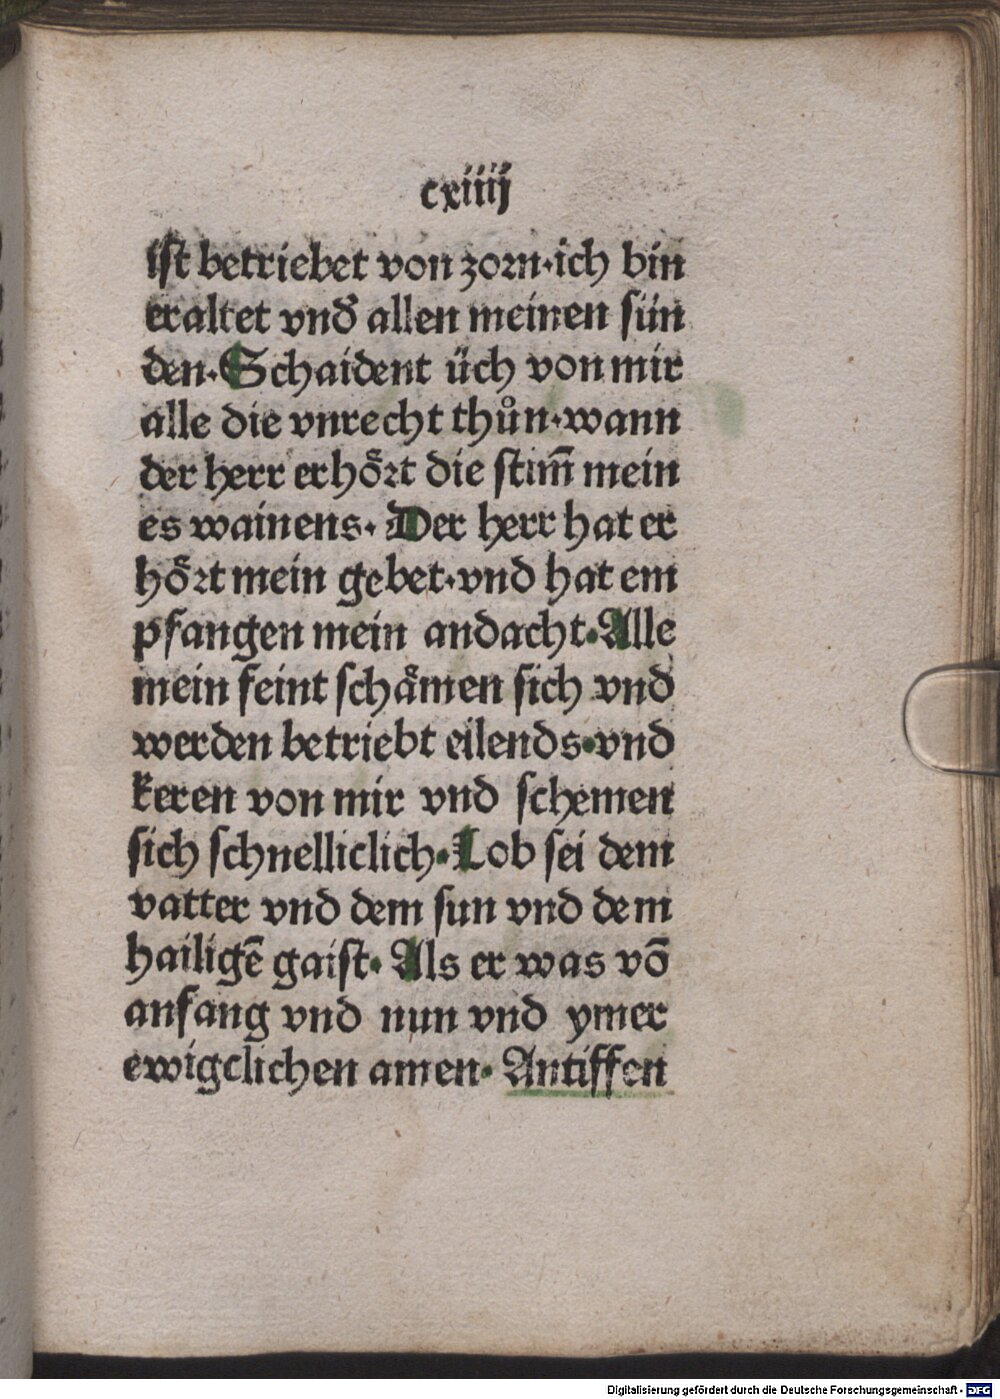 cxiiij
ist betriebet von zorn·ich bin
eraltet vnd̕ allen meinen sün
den·Schaident üch von mir
alle die vnrecht thůn·wann
der herr erhoͤrt die stim̄ mein
es wainens· Der herr hat er
hoͤrt mein gebet·vnd hat em
pfangen mein andacht·Alle
mein feint schaͤmen sich vnd
werden betriebt eilends·vnd
keren von mir vnd schemen
sich schnelliclich·Lob sei dem
vatter vnd dem sun vnd dem
hailigē gaist· Als er was vō
anfang vnd nun vnd ymer
ewigclichen amen· Antiffen
Digitalisierung gefördert durch die Deutsche Forschungsgemeinschaft - DFG